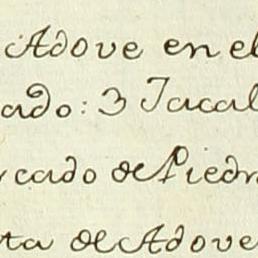 Adove en el
ado: 3 Jacal
rcado de Piedr
ta de Adove